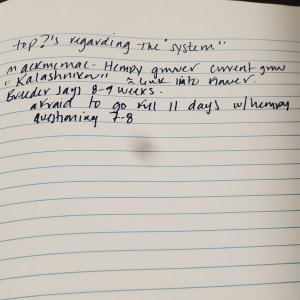 top ?'s regarding the "system"
mackmemac - Hempy grower current grow
"Kalashnikov" 2 week into flower.
Breeder says 8-9 weeks.
afraid to go full 11 days w/hempy
questioning 7-8